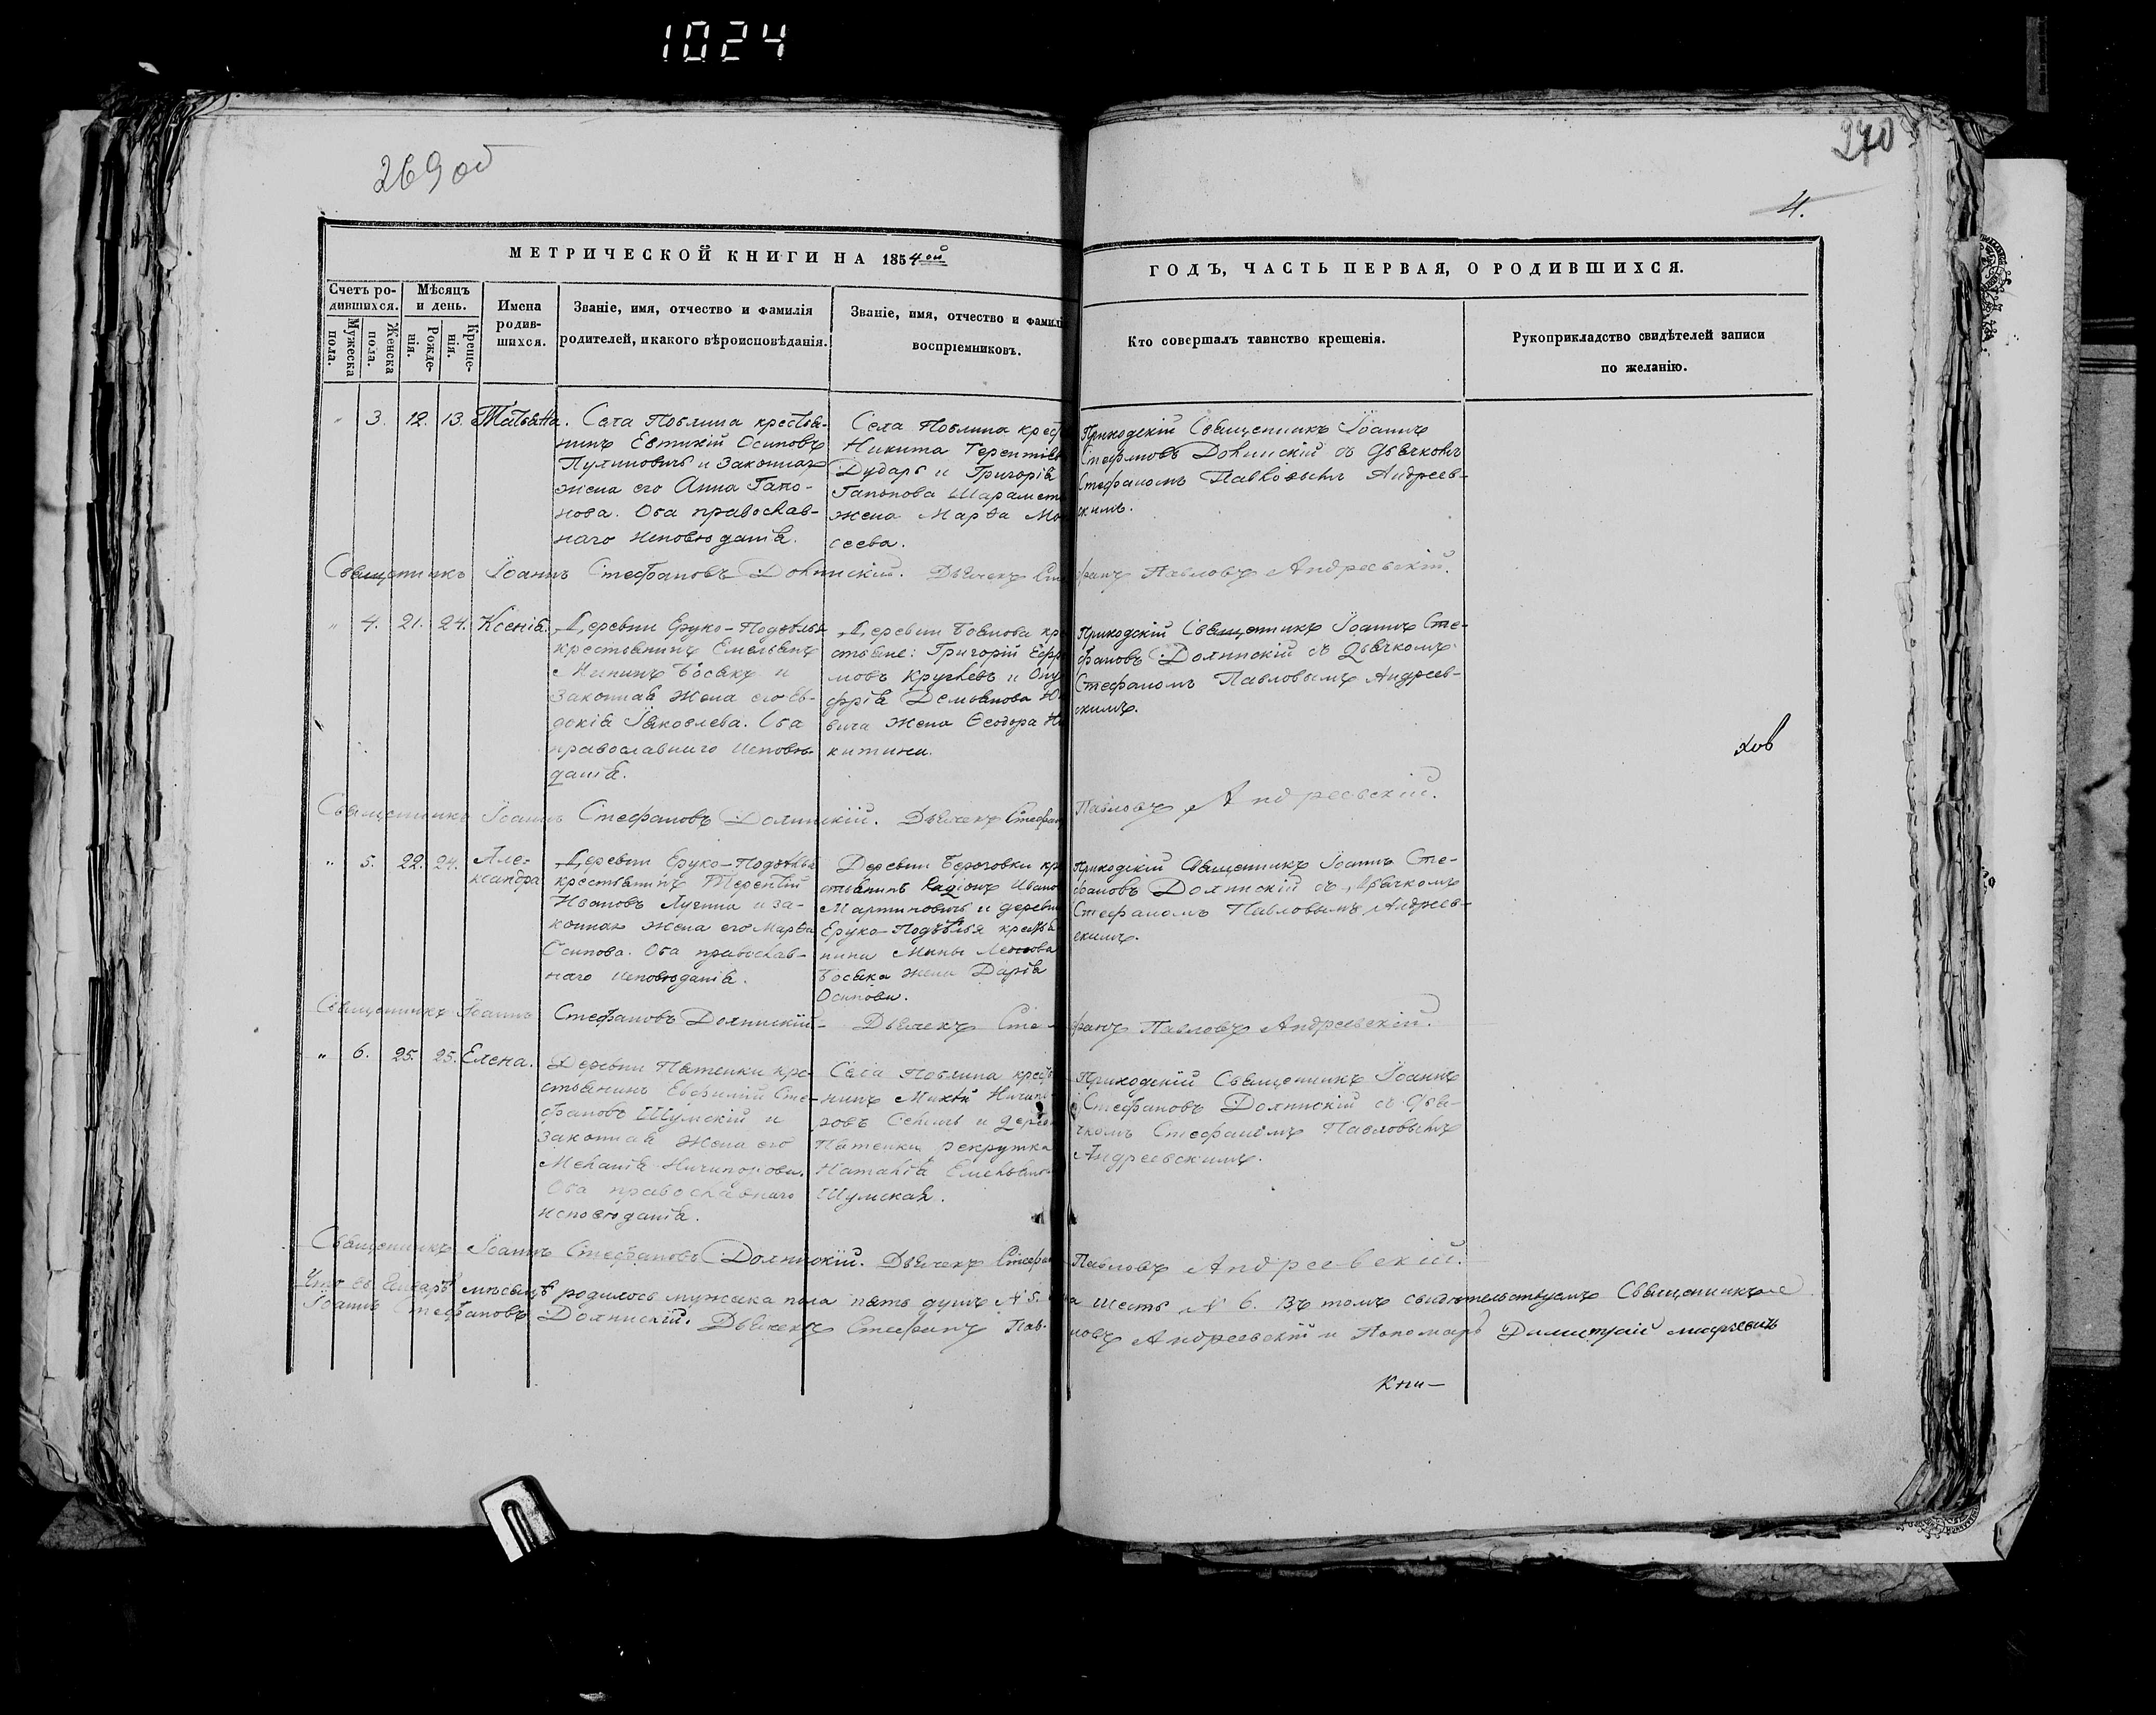 1024
269 об
270
4.
МЕТРИЧЕСКОЙ КНИГИ НА 1854 ой
ГОДЪ, ЧАСТЬ ПЕРВАЯ, О РОДИВШИХСЯ.
Счетъ ро-
дившихся.
Мужеска
пола.
Женска
пола.
Мѣсяцъ
и день.
Рожде-
нія.
Креще-
нія.
Имена
родив-
шихся.
Званіе, имя, отчество и фамилія
родителей, и какого вѣроисповѣданія.
Званіе, имя, отчество и фамилі
воспріемниковъ.
Кто совершалъ таинство крещенія.
Рукоприкладство свидѣтелей записи
по желанію.
" 3. 12. 13. Татьяна.
Села Повлина крестья-
нинъ Евтихій Осиповъ
и законная
жена его Анна Гапо-
нова. Оба православ-
наго исповѣданія.
Села Повлина крест
Никита Терентіев
Дударь и Григорія
Гапонова
жена Марѳа Мо
сеева.
Приходскій Священникъ Іоаннъ
Стефановъ Долинскій съ дьячкомъ
Стефаномъ Павловымъ Андреев-
скимъ.
Священникъ Іоаннъ Стефановъ Долинскій. Дьячекъ Сте
фанъ Павловъ Андреевскій.
" 4. 21. 24. Ксенія.
Деревни Еруко-Подѣлья
крестьянинъ Емельянъ
Мининъ Босякъ и
законная жена его Ев-
докія Яковлева. Оба
православнаго исповѣ-
данія.
Деревни кр
стьяне: Григорій Ефре
мовъ Круглевъ и Ону
фрія Демьянова Ю
вича жена Ѳеодора Ни
китина.
Приходскій Священникъ Іоаннъ Сте-
фановъ Долинскій съ дьячкомъ
Стефаномъ Павловымъ Андреев-
скимъ.
Священникъ Іоаннъ Стефановъ Долинскій. Дьячекъ Стефан
Павловъ Андреевскій.
" 5. 22. 24. Але-
ксандра
Деревни Еруко-Подѣлья
крестьянинъ Терентій
Ивановъ Лучина и за-
конная жена его Марѳа
Осипова. Оба православ-
наго исповѣданія.
Деревни кр
стьянинъ Радіонъ Ивано
Мартиновичъ и деревни
Еруко-Подѣлья крестья
нина Мины Леонова
Босяка жена Дарія
Осипова.
Приходскій Священникъ Іоаннъ Сте-
фановъ Долинскій съ дьячкомъ
Стефаномъ Павловымъ Андреев-
скимъ.
Священникъ Іоаннъ Стефановъ Долинскій. Дьячекъ Сте-
фанъ Павловъ Андреевскій.
" 6. 25. 25. Елена.
Деревни Патенки кре-
стьянинъ Евфимій Сте-
фановъ Шумскій и
законная жена его
Меланія Ничипорова.
Оба православнаго
исповѣданія.
Села Повлина крестья
нинъ Михѣй Ничипо
ровъ и дерев
Патенки рекрутка
Наталія Емельянов
Шумская.
Приходскій Священникъ Іоаннъ
Стефановъ Долинскій съ дья-
чкомъ Стефаномъ Павловымъ
Андреевскимъ.
Священникъ Іоаннъ Стефановъ Долинскій. Дьячекъ Стефан
Павловъ Андреевскій.
Что въ Январѣ мѣсяцѣ родилось мужска пола пять душъ № 5.
шесть № 6. Въ томъ свидѣтельствуемъ Священникъ
Іоаннъ Стефановъ Долинскій. Дьячекъ Стефанъ Пав-
ловъ Андреевскій и Пономарь Димитрій
Кни-